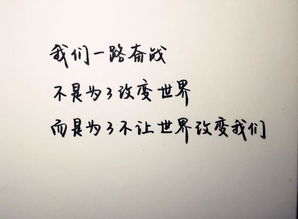 我们一路奋战
不是为了改变世界
而是为了不让世界改变我们